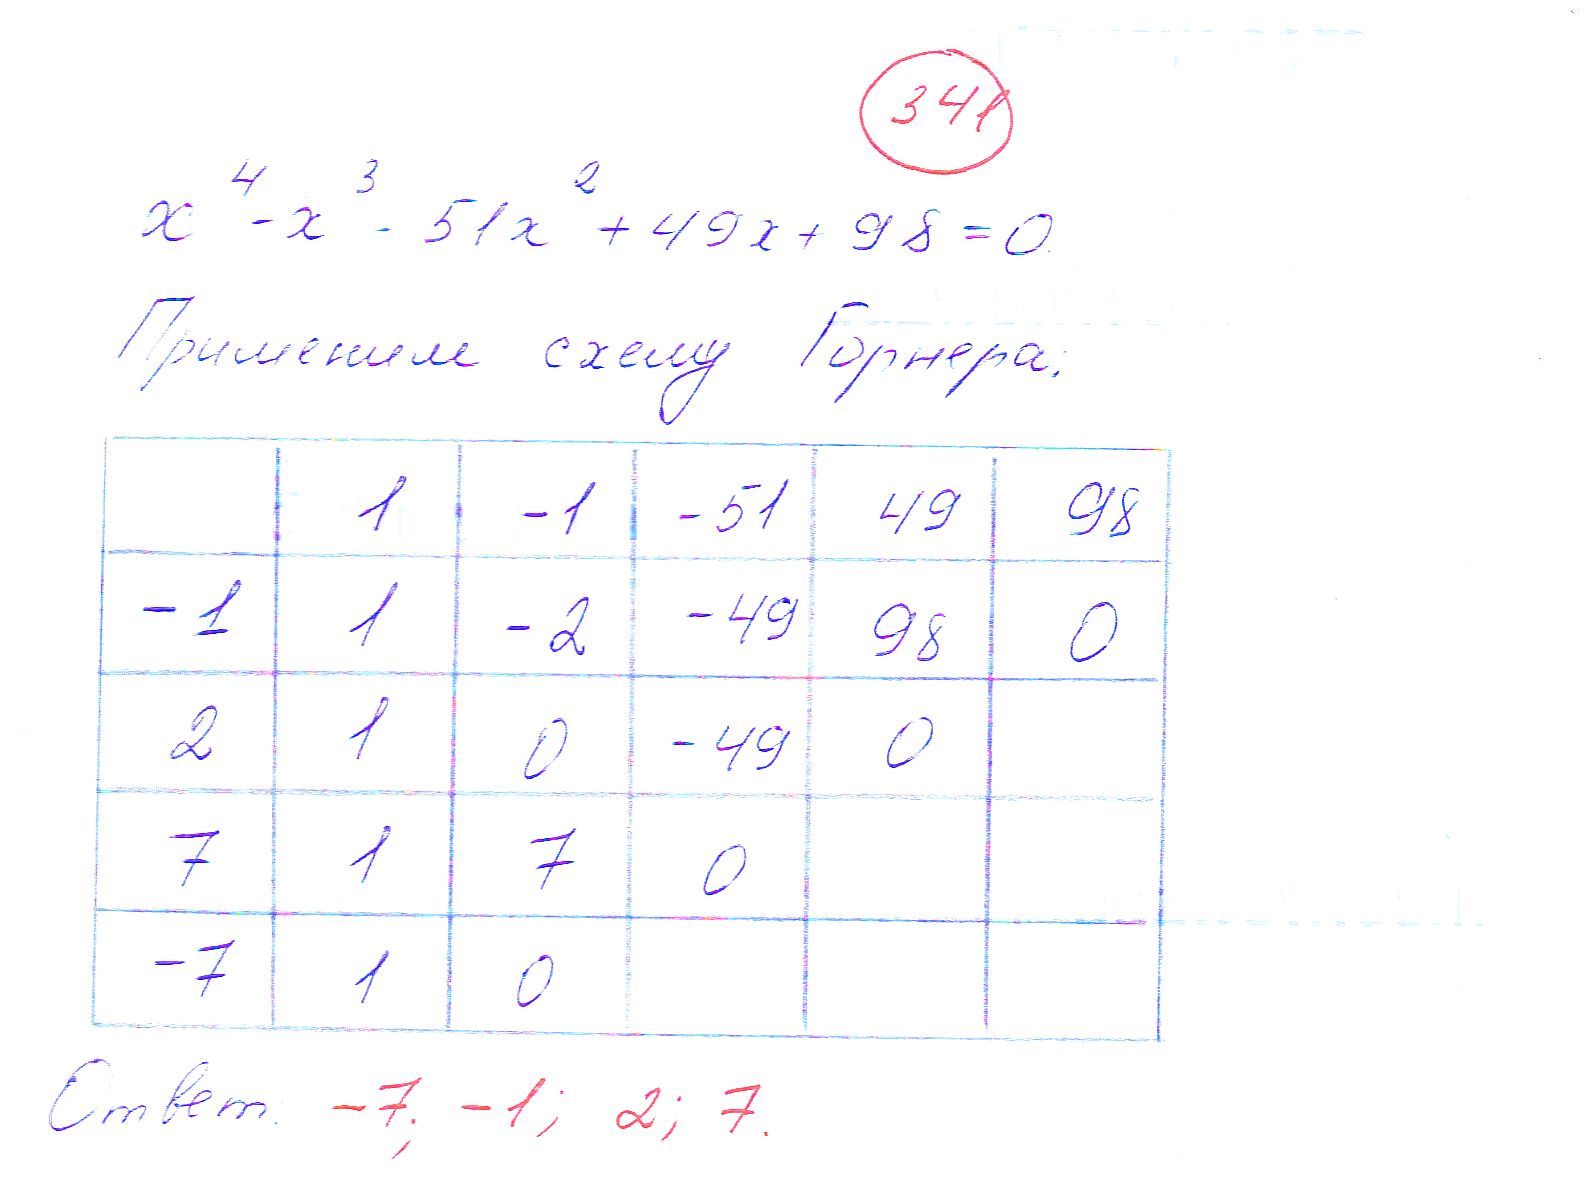 341
x⁴ - x³ - 51x² + 49x + 98 = 0.
Применим схему Горнера:
1 -1 -51 49 98
-1 1 -2 -49 98 0
2 1 0 -49 0
7 1 7 0
-7 1 0
Ответ: -7; -1; 2; 7.